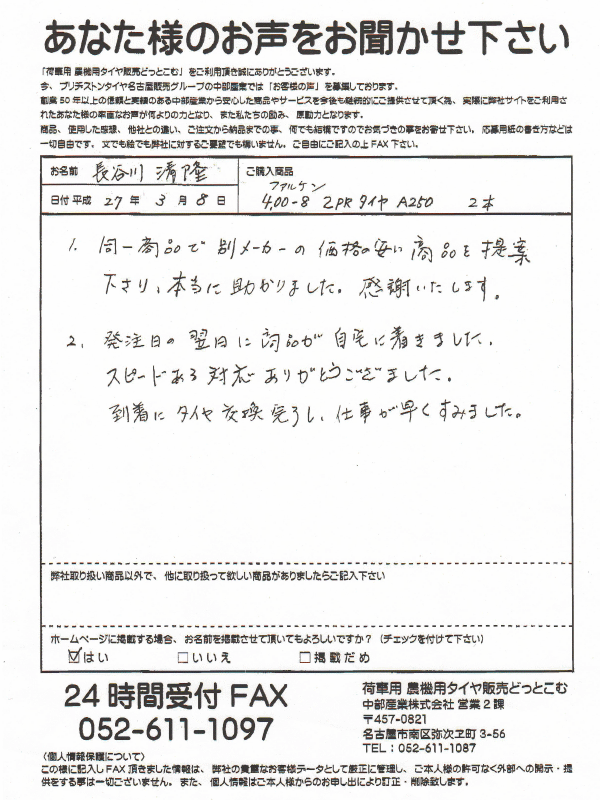 あなた様のお声をお聞かせ下さい
「荷車用 農機用タイヤ販売どっとこむ」をご利用頂き誠にありがとうございます。
今、ブリヂストンタイヤ名古屋販売グループの中部産業では「お客様の声」を募集しております。
創業50年以上の信頼と実績のある中部産業から安心した商品やサービスを今後も継続的にご提供させて頂く為、実際に弊社サイトをご利用さ
れたあなた様の率直なお声が何よりの力となり、また私たちの励み、原動力となります。
商品、使用した感想、他社との違い、ご注文から納品までの事、何でも結構ですのでお気づきの事をお寄せ下さい。応募用紙の書き方などは
一切自由です。文でも絵でも弊社に対するご要望でも構いません。ご自由にご記入の上FAX下さい。
お名前 長谷川 清隆
ご購入商品
日付 平成 27 年 3 月 8 日
ファルケン
4,00-8 2PR タイヤ A250 2本
1. 同一商品で別メーカーの価格の安い商品を提案
下さり、本当に助かりました。感謝いたします。
2. 発注日の翌日に商品が自宅に着きました。
スピードある対応ありがとうございました。
到着にタイヤ交換完了し、仕事が早くすみました。
弊社取り扱い商品以外で、他に取り扱って欲しい商品がありましたらご記入下さい
ホームページに掲載する場合、お名前を掲載させて頂いてもよろしいですか？（チェックを付けて下さい）
☑はい □いいえ □掲載だめ
24時間受付FAX
052-611-1097
荷車用 農機用タイヤ販売どっとこむ
中部産業株式会社 営業2課
〒457-0821
名古屋市南区弥次ヱ町3-56
TEL：052-611-1087
〈個人情報保護について〉
この様に記入しFAX頂きました情報は、弊社の貴重なお客様データとして厳正に管理し、ご本人様の許可なく外部への開示・提
供をする事は一切ございません。また、個人情報はご本人様からのお申し出により訂正・削除致します。